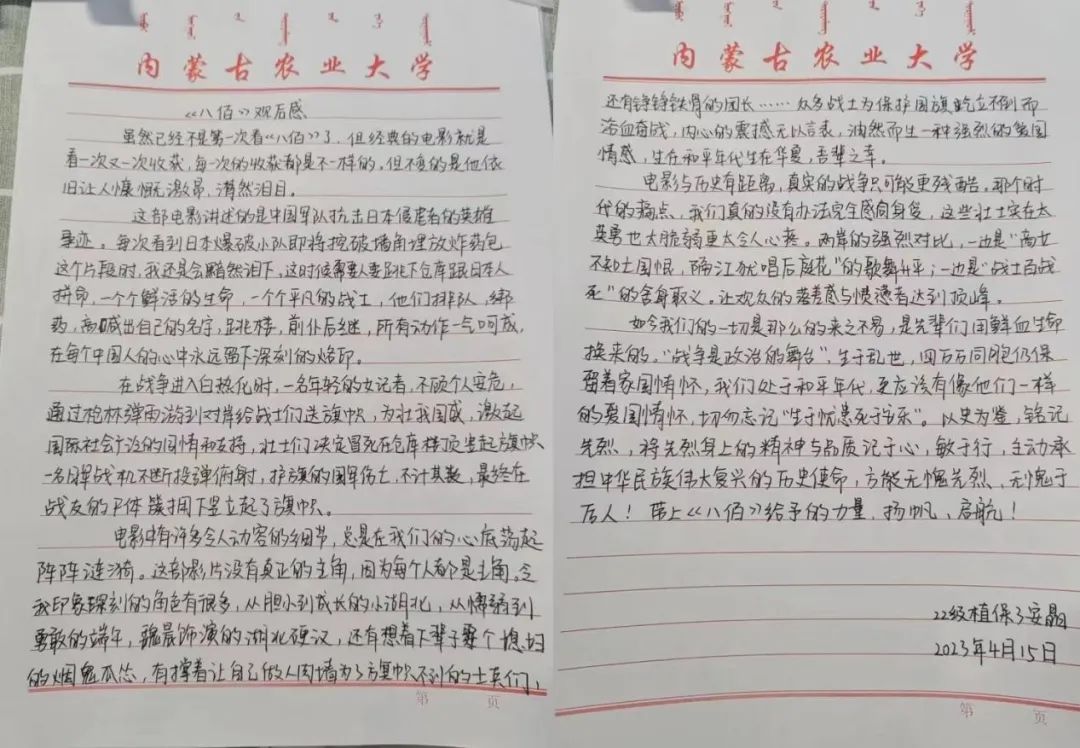 内蒙古农业大学
《八佰》观后感
虽然已经不是第一次看《八佰》了，但经典的电影就是
看一次又一次收获，每一次的收获都是不一样的，但不变的是他依
旧让人慷慨激昂、潸然泪目。
这部电影讲述的是中国军队抗击日本侵略者的英雄
事迹。每次看到日本爆破小队即将挖破墙角埋放炸药包
这个片段时，我还是会黯然泪下，这时候需要人要跳下仓库跟日本人
拼命，一个个鲜活的生命，一个个平凡的战士，他们排队，绑
药，高喊出自己的名字，跳楼，前仆后继，所有动作一气呵成，
在每个中国人的心中永远留下深刻的烙印。
在战争进入白热化时，一名年轻的女记者，不顾个人安危，
通过枪林弹雨游到对岸给战士们送旗帜，为壮我国威，激起
国际社会广泛的同情和支持，壮士们决定冒死在仓库楼顶竖起旗帜
日军战机不断投弹俯射，护旗的国军伤亡不计其数，最终在
战友的尸体簇拥下竖立起了旗帜。
电影中有许多令人动容的细节，总是在我们的心底荡起
阵阵涟漪。这部影片没有真正的主角，因为每个人都是主角。令
我印象深刻的角色有很多，从胆小到成长的小湖北，从懦弱到
勇敢的端午，魏晨饰演的湖北硬汉，还有想着下辈子要个媳妇
的烟鬼瓜怂，有撑着让自己做人肉墙为了旗帜不倒的士兵们，
第 页
内蒙古农业大学
还有铮铮铁骨的团长……众多战士为保护国旗屹立不倒而
浴血奋战，内心的震撼无以言表，油然而生一种强烈的爱国
情感，生在和平年代生在华夏，吾辈之幸。
电影与历史有距离，真实的战争只可能更残酷。那个时
代的痛点，我们真的没有办法完全感同身受，这些壮士实在太
英勇也太脆弱更太令人心疼。两岸的强烈对比，一边是“商女
不知亡国恨，隔江犹唱后庭花”的歌舞升平；一边是“战士百战
死”的舍身取义。让观众的落差感与愤懑者达到顶峰。
如今我们的一切是那么的来之不易，是先辈们用鲜血生命
换来的。“战争是政治的舞台”，生于乱世，四万万同胞仍保
留着家国情怀，我们处于和平年代，更应该有像他们一样
的爱国情怀，切勿忘记“生于忧患死于安乐”。以史为鉴，铭记
先烈，将先烈身上的精神与品质记于心，敏于行，主动承
担中华民族伟大复兴的历史使命，方能无愧先烈、无愧于
后人！带上《八佰》给予的力量，扬帆、启航！
22级植保3安晶
2023年4月15日
第 页